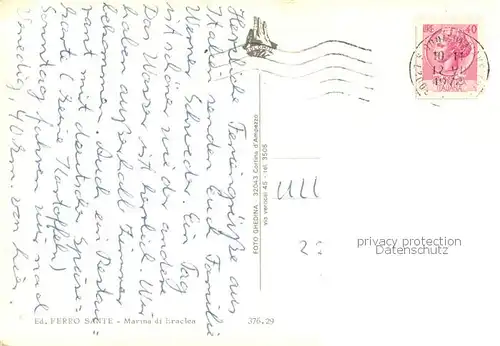 Herzliche Feriengrüße aus
Italien sendet Euch Familie
Werner Schneider. Ein Tag
ist schöner wie der andere
Das Wasser ist herrlich. Wir
haben außerhalb Zimmer
bekommen. Auch ein Restau-
rant mit deutscher Speise-
karte (keine Kartoffeln)
Sonntag fahren wir nach
Venedig, 40 km. von hier.
FOTO GHEDINA - 32043 Cortina d'Ampezzo
via verocai 45 - tel. 3505
Ed. FERRO SANTE - Marina di Eraclea
376.29
LIRE 40
privacy protection
Datenschutz